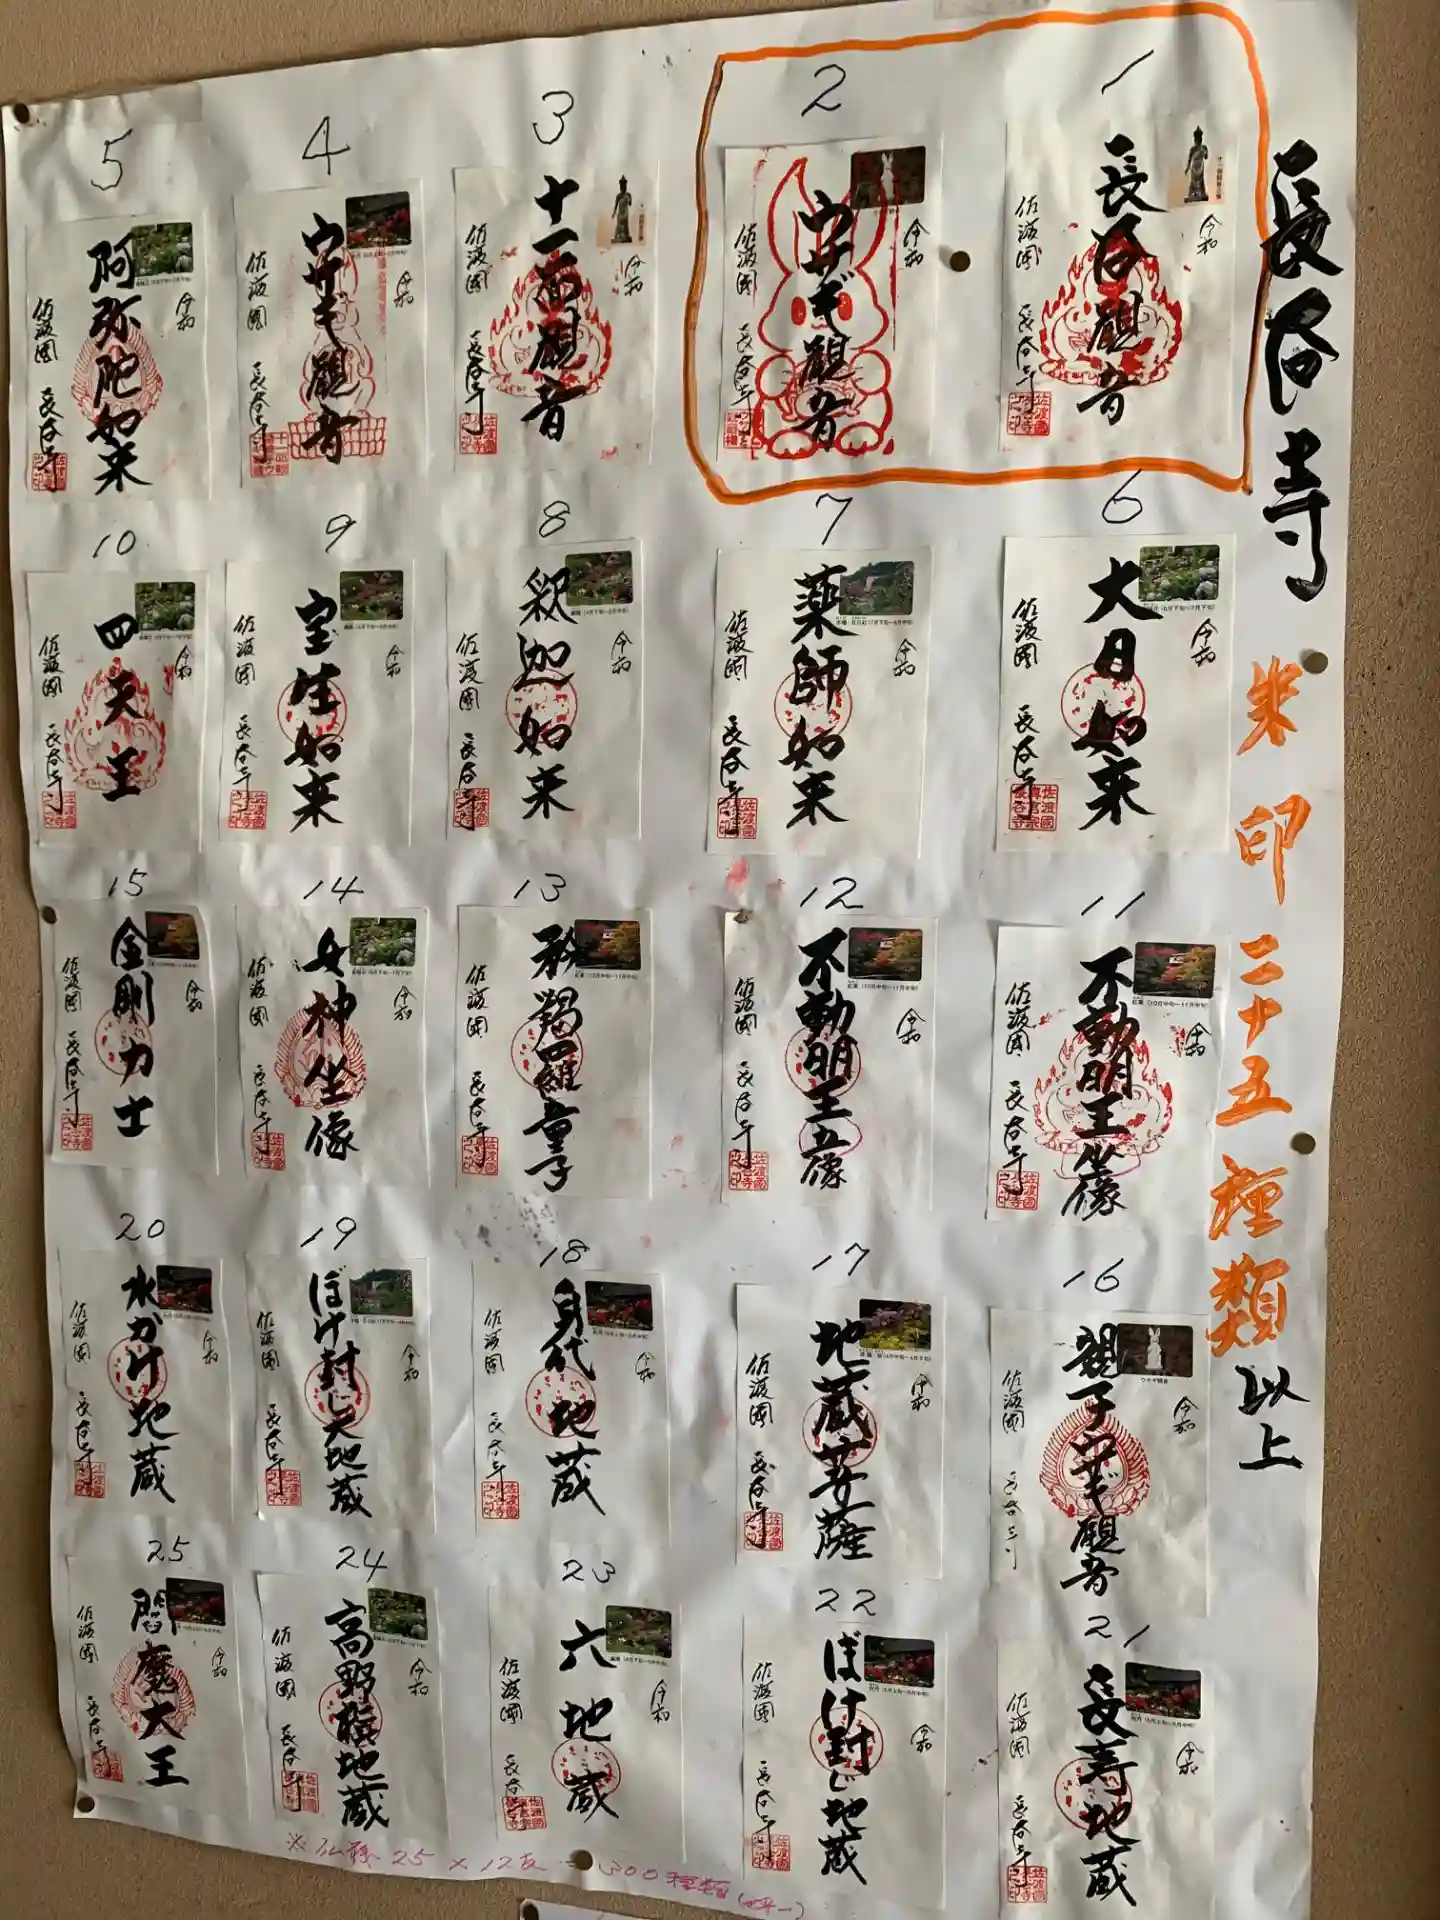 長谷寺 朱印二十五種類以上
1
長谷観音
令和
佐渡國 長谷寺
2
ウサギ観音
令和
佐渡國 長谷寺
3
十一面観音
令和
佐渡國 長谷寺
4
ウサギ観音
令和
佐渡國 長谷寺
5
阿弥陀如来
令和
佐渡國 長谷寺
6
大日如来
令和
佐渡國 長谷寺
7
薬師如来
令和
佐渡國 長谷寺
8
釈迦如来
令和
佐渡國 長谷寺
9
宝生如来
令和
佐渡國 長谷寺
10
四天王
令和
佐渡國 長谷寺
11
不動明王坐像
令和
佐渡國 長谷寺
12
不動明王立像
令和
佐渡國 長谷寺
13
矜羯羅童子
令和
佐渡國 長谷寺
14
女神坐像
令和
佐渡國 長谷寺
15
金剛力士
令和
佐渡國 長谷寺
16
親子ウサギ観音
令和
佐渡國 長谷寺
17
地蔵菩薩
令和
佐渡國 長谷寺
18
身代地蔵
令和
佐渡國 長谷寺
19
ぼけ封じ大地蔵
令和
佐渡國 長谷寺
20
水かけ地蔵
令和
佐渡國 長谷寺
21
長寿地蔵
令和
佐渡國 長谷寺
22
ぼけ封じ地蔵
令和
佐渡國 長谷寺
23
六地蔵
令和
佐渡國 長谷寺
24
高野槙地蔵
令和
佐渡國 長谷寺
25
閻魔大王
令和
佐渡國 長谷寺
※仏種 25×12支=300種類